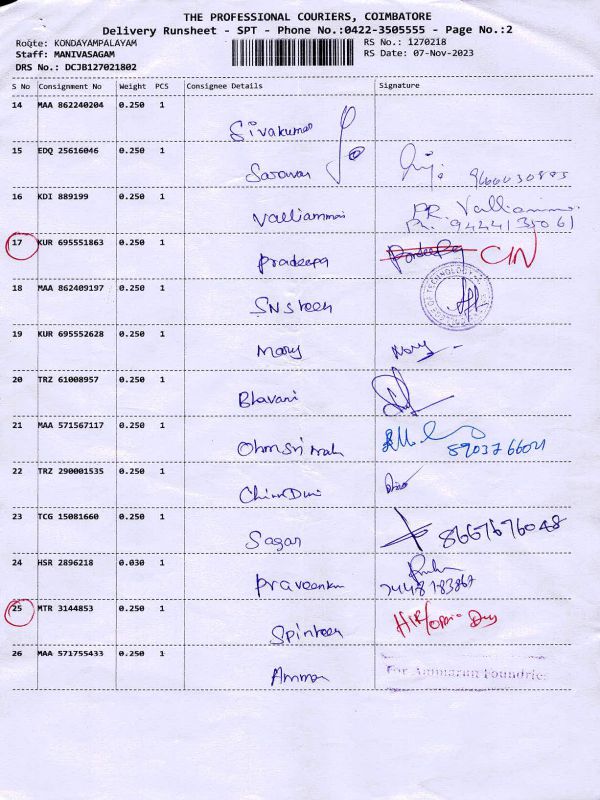 THE PROFESSIONAL COURIERS, COIMBATORE
Delivery Runsheet - SPT - Phone No.:0422-3505555 - Page No.:2
Route: KONDAYAMPALAYAM RS No.: 1270218
Staff: MANIVASAGAM RS Date: 07-Nov-2023
DRS No.: DCJB127021802
S No Consignment No Weight PCS Consignee Details Signature
14 MAA 862240204 0.250 1 Sivakumar
15 EDQ 25616046 0.250 1 Saravan
16 KDI 889199 0.250 1 Valliammai PR. Valliammai
Ph: 9444135061
17 KUR 695551863 0.250 1 Pradeepa Pradeepa
18 MAA 862409197 0.250 1 SNS steen
19 KUR 695552628 0.250 1 Mary Mary
20 TRZ 61008957 0.250 1 Bhavani
21 MAA 571567117 0.250 1 Ohmsri
22 TRZ 290001535 0.250 1
23 TCG 15081660 0.250 1 Sagar 8667676048
24 HSR 2896218 0.030 1 Praveenku 7448783867
25 MTR 3144853 0.250 1
26 MAA 571755433 0.250 1 Amman For Ammarun Foundries